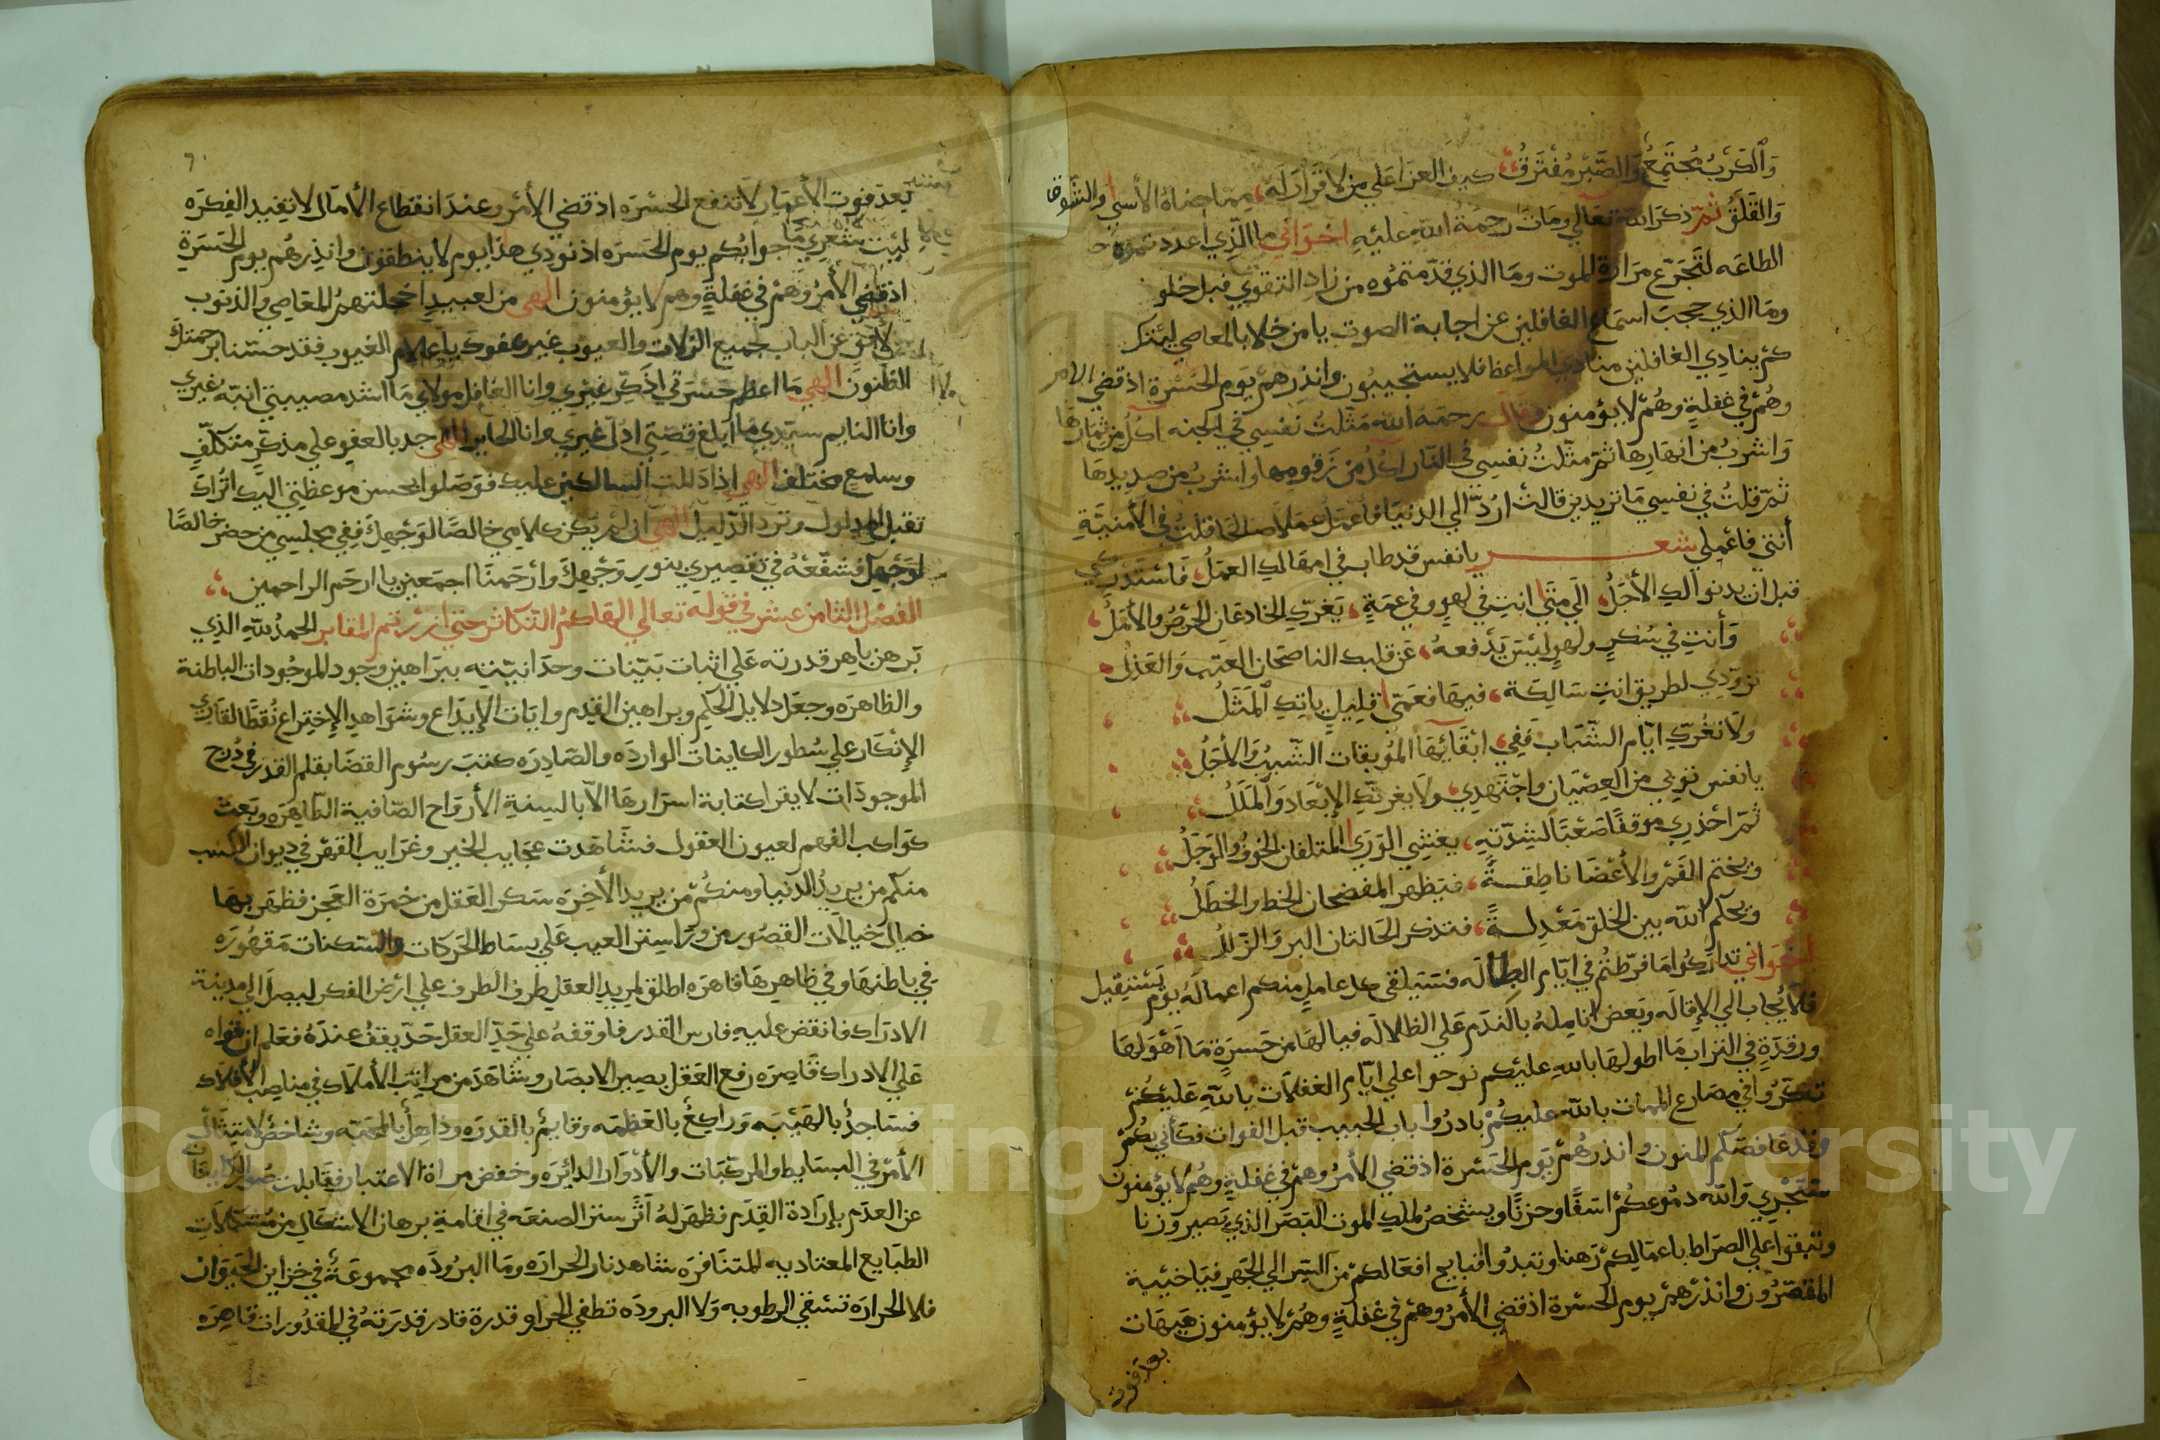 وَالكَرْبُ مُجْتَمِعٌ وَالصَّبْرُ مُفْتَرَقُ كيف العزا علي من لا قَرَارَ لَه مما جناهُ الأسي والشوق
وَالقَلَقُ ثمّ ذكرَ الله تعَالي ومَاتَ رحمَةُ الله عليْهِ اخوَاني ما الّذي اعددتموه
الطاعَه لتَجَرّع مرَارة الموت ومَا الذي قدّمتموُه من زاد التقوي قبل خلو
ومَا الذي حجبَ اسمَاع الغافلين عن اجابة الصوت يا من خلا بالمعاصي
كم ينادي الغافلين منادي المواعظ فلا يستجيبون وانذِرهمْ يَومَ الحَسْرة اذ قضي الامر
وهُمْ في غفلةٍ وهُمْ لا يؤمنون قال رحمَهُ الله مَثّلتُ نفسِي في الجنه آكلُ من ثمارهَا
وَاشربُ من انهَارِها ثمّ مثّلتُ نفسِي في النّار آكلُ من زقومها واشربُ من صديدِهَا
ثمّ قلتُ في نفسِي مَا تريدين قالت ارُدّ الي الدنيَا فأعْمَلُ عمَلاً صالحًا قلتُ في الأمنيَّةِ
أنتي فاعمَلي شعر يا نفس قد طاب في امهالك العمَلُ فاستَدركي
قبل ان يدنو الك الأجَلُ الَي مَتَي انتِ في لهوٍ وفي عمَهٍ يَغرّكِ الخادعَان الحِرْصُ والأمَلُ
وَأنتِ في سُكرٍ ولهوٍ ليْسَ يَدْفعهُ عَن قلبك الناصحَان العَتبُ وَالعَذلُ
تزوّدِي لطريقٍ انتِ سَالكَة فيهَا فعَمّا قليلٍ ياتكِ المَثَلُ
ولا تغُرّكِ ايّام الشّبَاب ففِي ابقَائِهَا الموبقات الشّيبُ وَالأجَلُ
يا نفس توبي من العِصْيَان واجْتَهدِي ولا يغررْكِ الإبْعَادُ وَالمَلَلُ
ثمّ احْذرِي موقفًا صَعْبًا لشِدّتِهِ يغشِي الوَرَي المتلفان الخوْفُ والوَجَلُ
ويختم الفَمُ والأعْضَا ناطِقةً فيَظهر المفضحان الخط والخطلُ
ويحكم الله بين الخلق مَعْدلةً فتذكر الحَالتان البر وَالزّللُ
اخوَاني تدَاركوا مَا فرّطتُمْ في ايّام البطَالَه فسَيَلقي كل عامِلٍ منكم اعمالَهُ يوم يَسْتقيل
فلا يُجاب الي الإقالَه ويَعض انامِلهُ بالنّدَم عَلي الظلالَه فيا لهَا من حَسرةٍ مَا اهْوَلهَا
ورقدَةٍ في التراب مَا اطولهَا بالله عليكم نوحوا علي ايّام الغفلات بالله عَليْكُمْ
تفكرُوا في مصَارع الممات بالله عليكُمْ بادرُوا باب الحبيب قبل الفوات فكأني بكُمْ
وقد غافصَكم المنون وانذرهُمْ يَوم الحَسْرة اذ قضي الأمرُ وهمْ في غفلةٍ وهُم لا يؤمنون
ستَجْري وَالله دمُوعكُمْ اسَفًا وحزنًا ويشخصُ لملك الموت البَصَر الذي
وتبقوا علي الصّراط باعمَالِكُمْ رَهنا وتبدُوا قبايح افعَالكمْ من السّر الي الجَهر فيَا خيْبة
المقصّرُون وانذرْهمْ يوم الحَسْرة اذ قضي الأمرُ وهمْ في غفلةٍ وهُمْ لا يؤمنون هَيهَات
بعد فوت
٦٠
بَعدَ فوت الأعمَارِ لا تنفع الحَسْرَه اذ قضي الأمْر وعندَ انقطاع الأمَال لا يفيد الفِكرَه
ليْت شعري مَا جوابُكم يوم الحَسَره اذ نودي هذا يوم لا ينطقون وانذِرهُم يوم الحَسَرةِ
اذ قضي الأمْرُ وهُمْ في غفلةٍ وهم لا يؤمنون الهي من لعبيدٍ اخجلتهمُ المعَاصِي والذنوب
عن الباب لجميع الزلات والعيوب غير عفوك يا علام الغيوب فقد حسّنا برحمتكَ
الظنُونَ الهي مَا اعظم حَسْرَتي اذكّر غيْري وانا الغافِل مولاي مَا اشد مصيبتي انبّه غيري
وانا النايم سيّدي مَا ابلغ قصّتي ادلّ غيري وانا الحاير الهي جد بالعفو علي مذكّرٍ متكلّفٍ
وسامع مختلف الهي اذا دللت السالكين عليك فوصَلوا بحسن موعظتي اليْك اتُرَاكَ
تقبل المدلول وترد الدّليل الهي ان لمْ يَكن كلامي خالصًا لوَجْهِكَ ففي مجلسِي من حضر خالصًا
لوَجْهِكَ فشفّعْهُ في تقصِيري بنورِ وَجْهِكَ وارْحَمنَا اجمَعين يا ارحَم الراحمين
الفصْل الثامن عشر في قوله تعالي الهَاكمُ التّكاثر حتي زرْتم المقابر الحمدُ لله الذي
بَرهن باهِر قدرته عَلي اثبات بَيّنات وحدَانيّتِه ببَراهين وجود الموجُودات الباطنة
والظاهرَه وجعَل دلايل الحكَم وبراهين القِدَم وايَات الإبدَاع وشوَاهدِ الإختراع نُقطًا لقاري
الإنكارِ علي سُطور الكاينات الواردَه والصّادِرَه كتبَ رسُوم القضَا بقلم القدَر في دُرج
الموجودَات لا يقرا كتابة اسرَارهَا الّا بالسِنةِ الأروَاح الصّافية الطّاهِرَه وبَعثَ
كوَاكب الفهم لعيون العقول فشَاهَدت عجَايب الخبر وغرَايب القهْر في ديوان الكَسب
منكم من يريدُ الدنيا ومنكُمْ من يريد الأخِرَه سَكر العَقل من خمرَة العَجز فظهَر بهَا
خيال خيالات القصُور من ورَا سِتر الغيب عَلي بسَاط الحَركات والسّكنات مَقهُورَه
في باطنهَا وفي ظاهِرِهَا قاهرَه اطلق لمريد العقل طرف الطرف علي ارْض الفكر ليصِلَ الي مدينة
الادرَاك فانقض عليه فارس القدر فاوقفهُ علي حَدّ العقل حَدّ يقفُ عندَهُ فعَلم ان قواه
عَلي الادراك قاصِرَه رفع العَقل بصير الابصار وشاهَدَ من مرَاتب الأملاك في مناصِب الأفلاك
فسَاجدٌ بالهَيْبَه وَراكعٌ بالعَظمَه وقايمٌ بالقدرَه وذاهِلٌ بالمحبّه وشاخصٌ لامتثال
الأمْر في البسَايط والمركبَات والأدْوَار الدايْرَه وخفض مراةَ الاعتبار فقابلت صُور الكاينات
عن العدَم بإرَادة القِدَم فظهَرَ لهُ اثر سِتر الصنعَه في اقامةِ برهان الاشكال من مشكلات
الطبَايع المعتاديه المتنَافرَه شاهدَ نار الحرَارَه ومَا البرُودَه مجموعَةً في خزاين الحَيَوَانْ
فلا الحرارَه تسْتقي الرطوبه وَلا البرودَه تطفي الحرارَه قدرة قادر قدرَتهُ في المقدُورَات قاهِرَه
Copyright © King Saud University